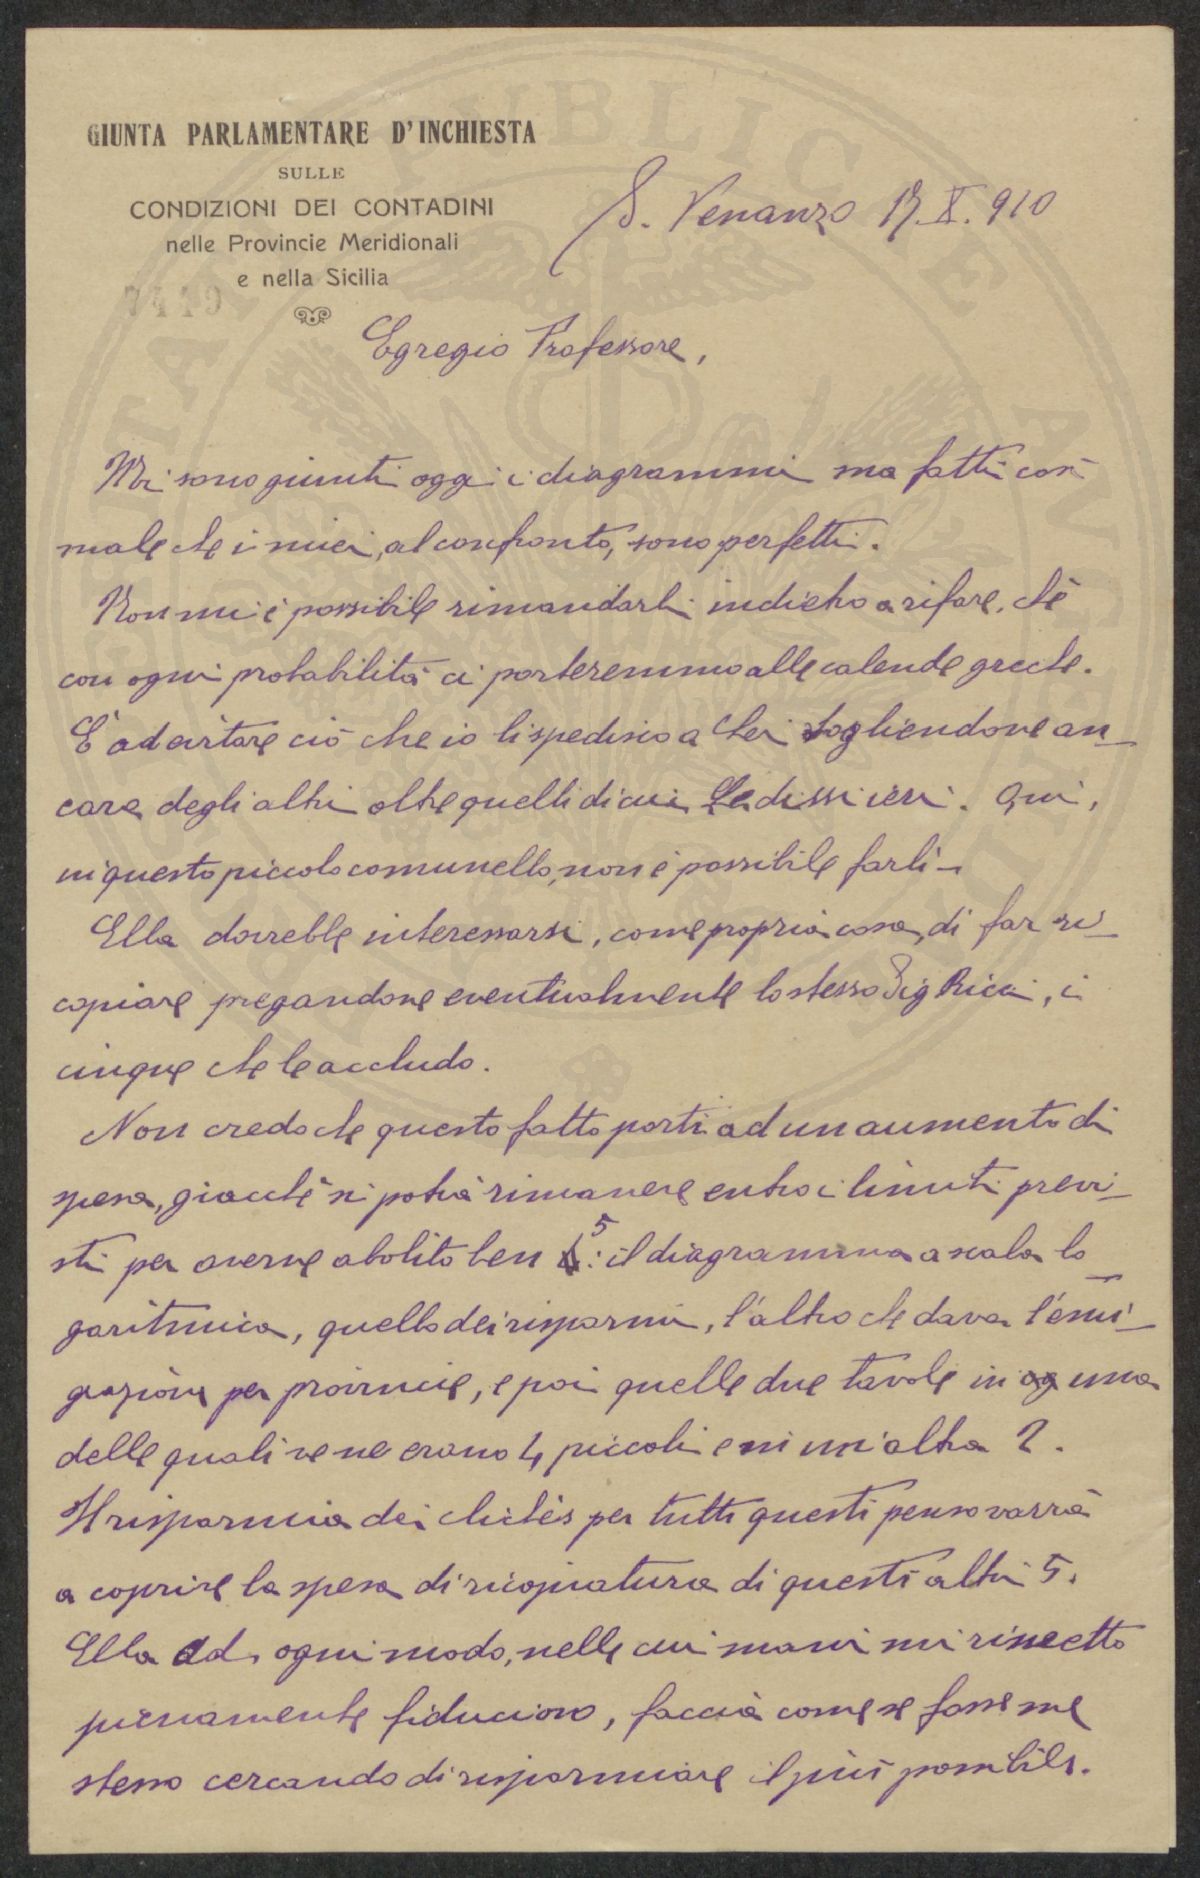 GIUNTA PARLAMENTARE D'INCHIESTA
SULLE
CONDIZIONI DEI CONTADINI
nelle Provincie Meridionali
e nella Sicilia
S. Venanzo 17.X.910
Egregio Professore,
Mi sono giunti oggi i diagrammi ma fatti così
male che i miei, al confronto, sono perfetti.
Non mi è possibile rimandarli indietro a rifare, chè
con ogni probabilità ci porteremmo alle calende greche.
È ad evitare ciò che io li spedisco a Lei togliendone an_
cora degli altri oltre quelli di cui Le dissi ieri. Qui,
in questo piccolo comunello, non è possibile farli_
Ella dovrebbe interessarsi, come propria cosa, di far ri_
copiare pregandone eventualmente lo stesso Sig Ricci, i
cinque che le accludo.
Non credo che questo fatto porti ad un aumento di
spesa, giacchè si potrà rimanere entro i limiti previ_
sti per averne abolito ben 5: il diagramma a scala lo_
garitmica, quello dei risparmi, l'altro che dava l'emi_
grazione per provincie, e poi quelle due tavole in una
delle quali ve ne erano 4 piccoli e in un'altra 2.
Il risparmio dei clichès per tutti questi penso varrà
a coprire la spesa di ricopiatura di questi altri 5.
Ella ad ogni modo, nelle cui mani mi rimetto
pienamente fiducioso, faccia come se fosse me
stesso cercando di risparmiare il più possibile.